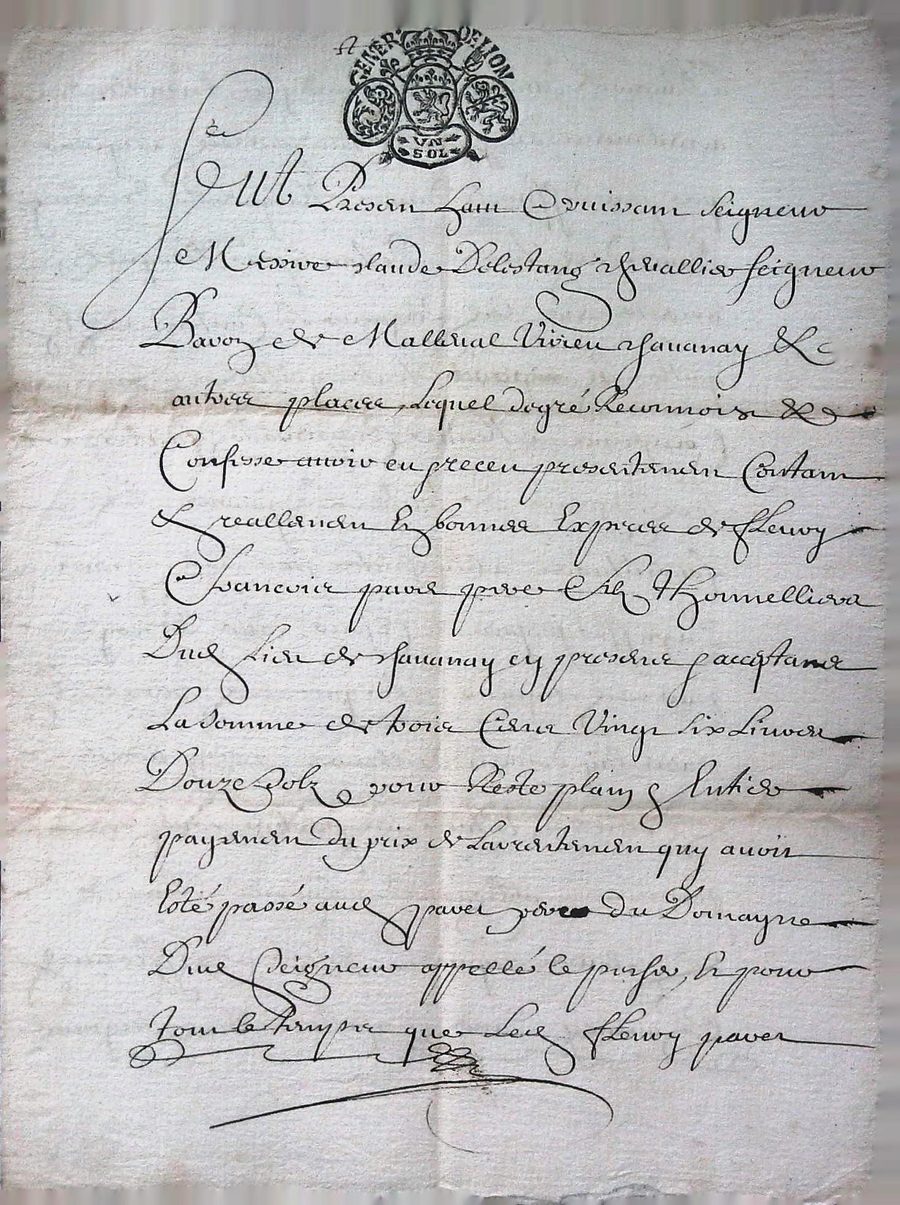 GENER DE LION
UN
SOL
Feut Present haut & puissant seigneur
Messire Claude Delestang chevallier seigneur
Baron de Malleval Virieu Chavanay &c
autres places, Lequel de gré Reconnoist &
Confesse avoir eu & receu presentement Contant
& reallement En bonnes Expeces de fleury
& francois paret pere & filz thonnelliers
Dud lieu de Chavanay cy presens & acceptans
La somme de trois Cens Vingt six Livres
Douze solz pour Reste plain & Entier
payement du prix de Larrentement quy avoit
Esté passé aud paret pere du Domayne
Dud seigneur appellé le pecher, Et pour
tout le temps que Led fleury paret